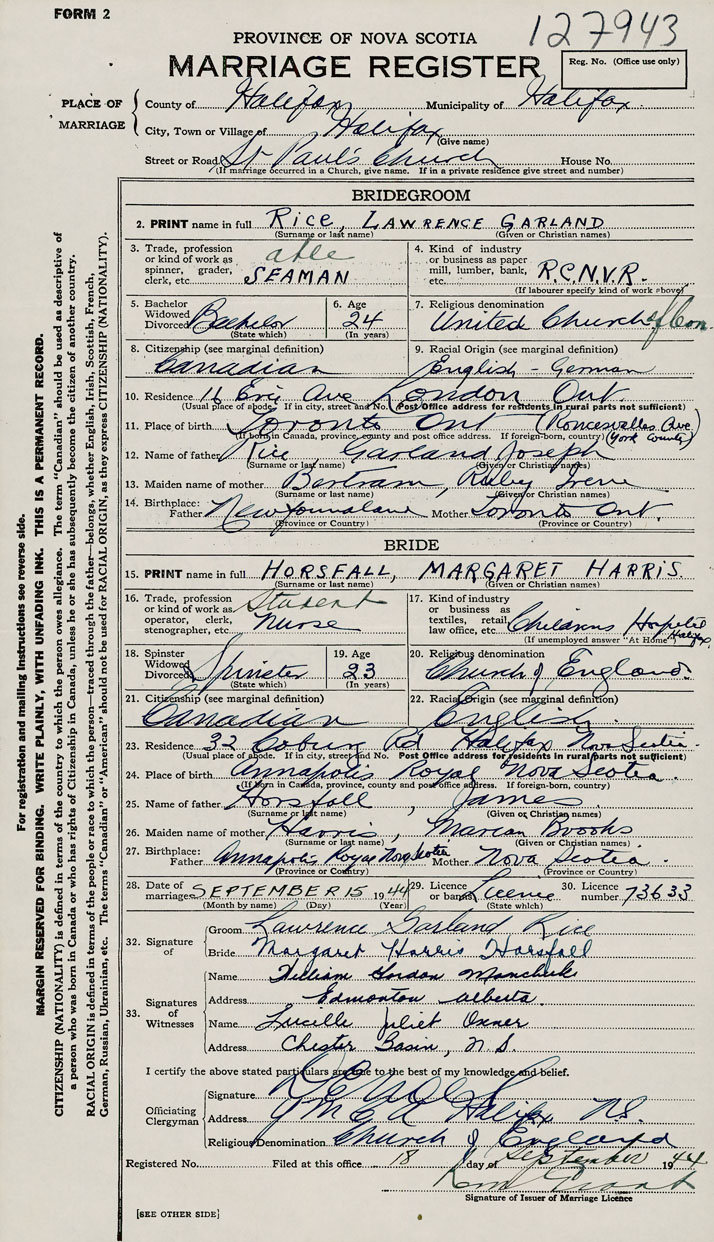 FORM 2
127943
PROVINCE OF NOVA SCOTIA
MARRIAGE REGISTER
Reg. No. (Office use only)
PLACE OF MARRIAGE
County of Halifax Municipality of Halifax.
City, Town or Village of Halifax
(Give name)
Street or Road St Paul's Church House No.
(If marriage occurred in a Church, give name. If in a private residence give street and number)
BRIDEGROOM
2. PRINT name in full RICE, LAWRENCE GARLAND
(Surname or last name) (Given or Christian names)
3. Trade, profession or kind of work as spinner, grader, clerk, etc. able SEAMAN
4. Kind of industry or business as paper mill, lumber, bank, etc. R.C.N.V.R.
(If labourer specify kind of work above)
5. Bachelor Widowed Divorced Bachelor (State which)
6. Age 24 (In years)
7. Religious denomination United Church of Can.
8. Citizenship (see marginal definition) Canadian
9. Racial Origin (see marginal definition) English - German
10. Residence 16 Erie Ave London Ont.
(Usual place of abode. If in city, street and No. Post Office address for residents in rural parts not sufficient)
11. Place of birth Toronto Ont (Roncesvalles Ave.) (York County)
(If born in Canada, province, county and post office address. If foreign-born, country)
12. Name of father Rice, Garland Joseph
(Surname or last name) (Given or Christian names)
13. Maiden name of mother Bertram, Ruby Irene
(Surname or last name) (Given or Christian names)
14. Birthplace: Father Newfoundland Mother Toronto Ont.
(Province or Country) (Province or Country)
BRIDE
15. PRINT name in full HORSFALL, MARGARET HARRIS.
(Surname or last name) (Given or Christian names)
16. Trade, profession or kind of work as operator, clerk, stenographer, etc. Student Nurse
17. Kind of industry or business as textiles, retail, law office, etc. Childrens Hospital Halifax,
(If unemployed answer "At Home")
18. Spinster Widowed Divorced Spinster (State which)
19. Age 23 (In years)
20. Religious denomination Church of England.
21. Citizenship (see marginal definition) Canadian
22. Racial Origin (see marginal definition) English.
23. Residence 32 Coburg Rd Halifax Nova Scotia.
(Usual place of abode. If in city, street and No. Post Office address for residents in rural parts not sufficient)
24. Place of birth Annapolis Royal Nova Scotia.
(If born in Canada, province, county and post office address. If foreign-born, country)
25. Name of father Horsfall, James
(Surname or last name) (Given or Christian names)
26. Maiden name of mother Harris, Marian Brooks
(Surname or last name) (Given or Christian names)
27. Birthplace: Father Annapolis Royal Nova Scotia Mother Nova Scotia.
(Province or Country) (Province or Country)
28. Date of marriage SEPTEMBER 15 1944
(Month by name) (Day) (Year)
29. Licence or banns Licence (State which)
30. Licence number 73633
32. Signature of
Groom Lawrence Garland Rice
Bride Margaret Harris Horsfall
33. Signatures of Witnesses
Name William Gordon
Address Edmonton Alberta.
Name Lucille Juliet
Address Chester Basin, N.S.
I certify the above stated particulars are true to the best of my knowledge and belief.
Officiating Clergyman
Signature
Address Y.M.C.A Halifax N.S.
Religious Denomination Church of England
Registered No. Filed at this office 18 day of September 1944
Signature of Issuer of Marriage Licence
[SEE OTHER SIDE]
For registration and mailing instructions see reverse side.
MARGIN RESERVED FOR BINDING. WRITE PLAINLY, WITH UNFADING INK. THIS IS A PERMANENT RECORD.
CITIZENSHIP (NATIONALITY) is defined in terms of the country to which the person owes allegiance. The term "Canadian" should be used as descriptive of
a person who was born in Canada or who has rights of Citizenship in Canada, unless he or she has subsequently become the citizen of another country.
RACIAL ORIGIN is defined in terms of the people or race to which the person—traced through the father—belongs, whether English, Irish, Scottish, French,
German, Russian, Ukrainian, etc. The terms "Canadian" or "American" should not be used for RACIAL ORIGIN, as they express CITIZENSHIP (NATIONALITY).